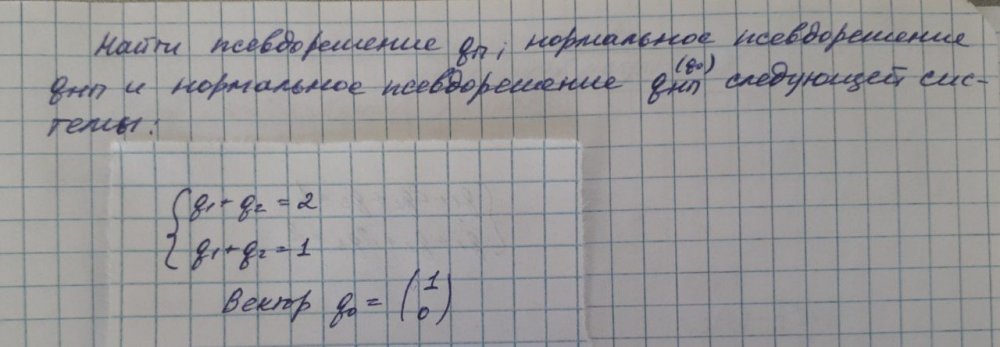 Найти псевдорешение qп, нормальное псевдорешение
qнп и нормальное псевдорешение qнп^(q₀) следующей сис-
темы:
{ q₁ + q₂ = 2
{ q₁ + q₂ = 1
Вектор q₀ = (1
0)